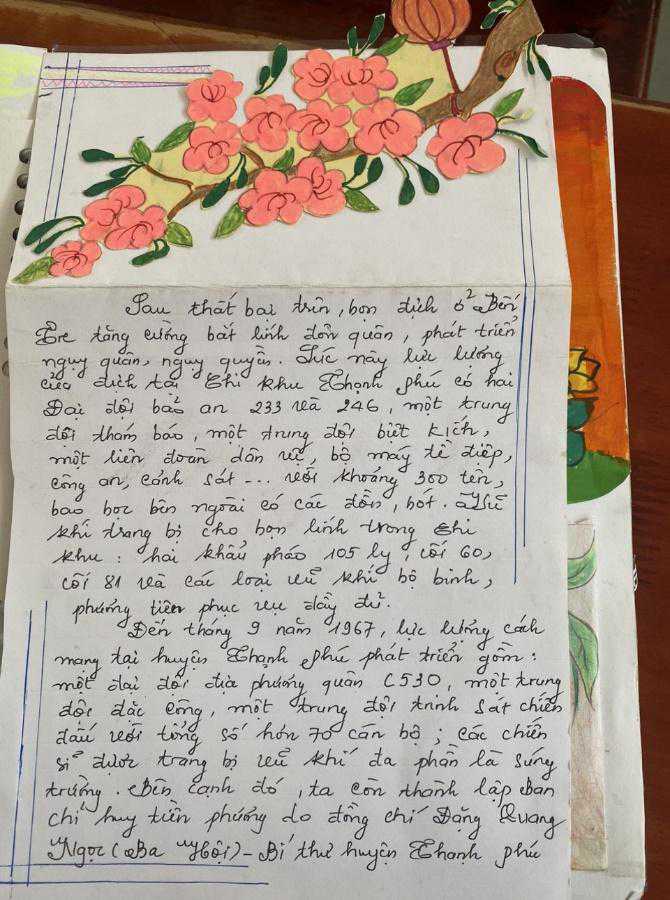 Sau thất bại trên, bọn địch ở Bến
Tre tăng cường bắt lính đôn quân, phát triển
ngụy quân, ngụy quyền. Lúc này lực lượng
của địch tại Chi khu Thạnh Phú có hai
Đại đội bảo an 233 và 246, một trung
đội thám báo, một trung đội biệt kích,
một liên đoàn dân vệ, bộ máy tề điệp,
công an, cảnh sát ... với khoảng 300 tên,
bao bọc bên ngoài có các đồn, bót. Vũ
khí trang bị cho bọn lính trong Chi
khu: hai khẩu pháo 105 ly, cối 60,
cối 81 và các loại vũ khí bộ binh,
phương tiện phục vụ đầy đủ.
Đến tháng 9 năm 1967, lực lượng cách
mạng tại huyện Thạnh Phú phát triển gồm:
một đại đội địa phương quân C530, một trung
đội đặc công, một trung đội trinh sát chiến
đấu với tổng số hơn 70 cán bộ; các chiến
sĩ được trang bị vũ khí đa phần là súng
trường. Bên cạnh đó, ta còn thành lập Ban
chỉ huy tiền phương do đồng chí Đặng Quang
Ngọc (Ba Hội) - Bí thư huyện Thạnh Phú